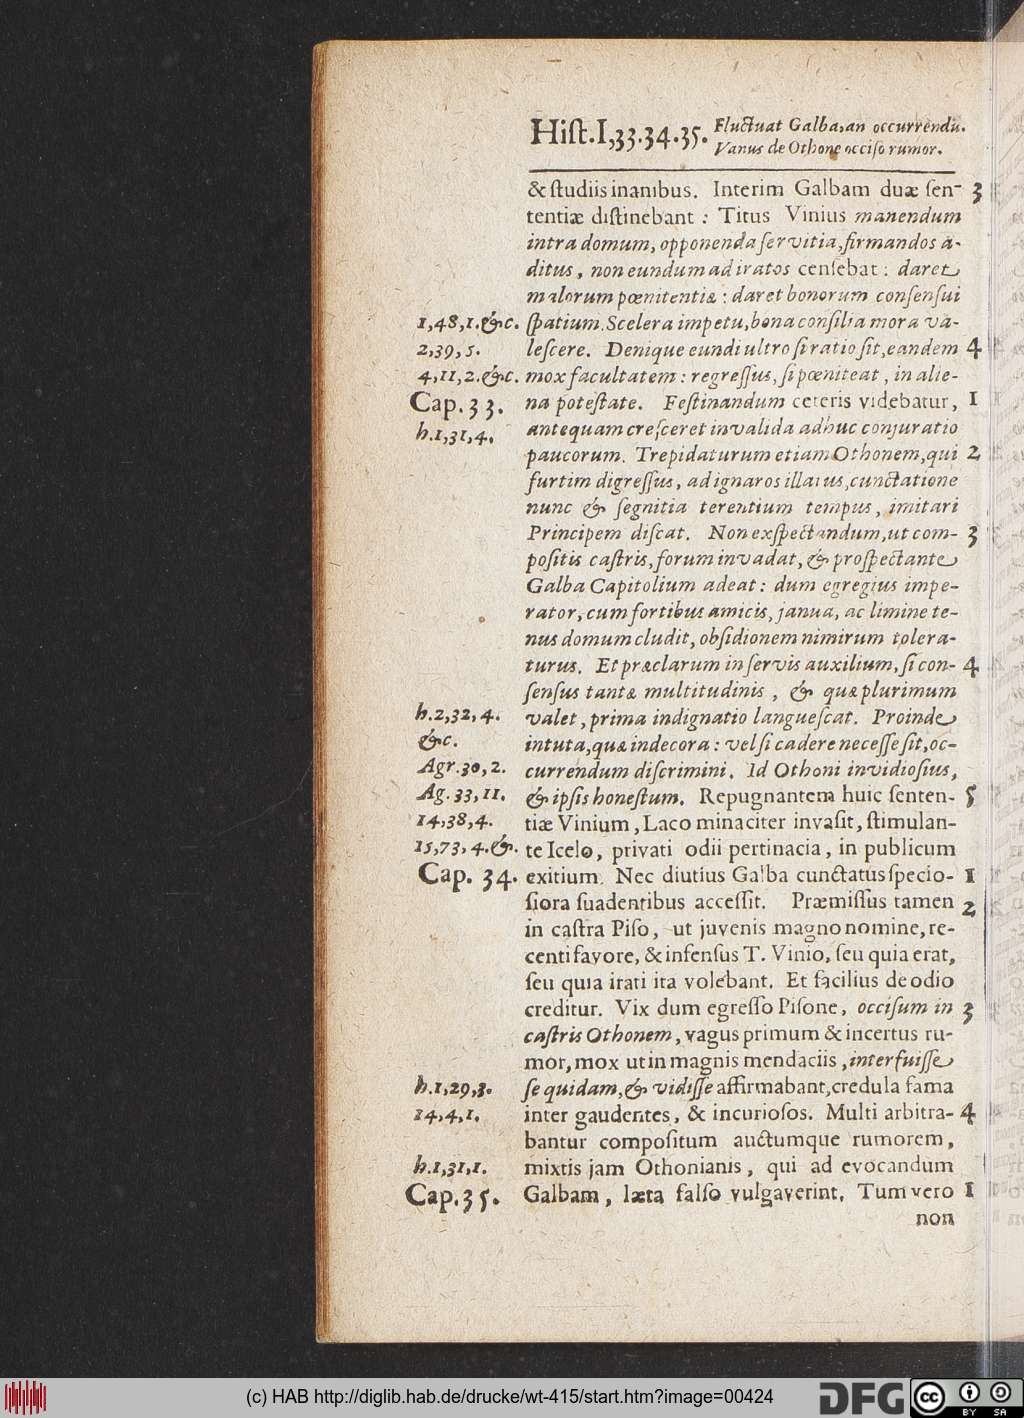 Hiſt. I, 33. 34. 35. Fluctuat Galba, an occurrendũ.
Vanus de Othone occiſo rumor.
& ſtudiis inanibus. Interim Galbam duæ ſen- 3
tentiæ diſtinebant : Titus Vinius manendum
intra domum, opponenda ſervitia, firmandos a-
ditus, non eundum ad iratos cenſebat : daret
malorum pœnitentiæ : daret bonorum conſenſui
1,48,1. &c. ſpatium. Scelera impetu, bona conſilia mora va-
2,39,5. leſcere. Denique eundi ultro ſi ratio ſit, eandem 4
4,11,2. &c. mox facultatem : regreſſus, ſi pœniteat, in alie-
Cap. 33. na poteſtate. Feſtinandum ceteris videbatur, 1
h.1,31,4. antequam creſceret invalida adhuc conjuratio
paucorum. Trepidaturum etiam Othonem, qui 2
furtim digreſſus, ad ignaros illatus, cunctatione
nunc & ſegnitia terentium tempus, imitari
Principem diſcat. Non exſpectandum, ut com- 3
poſitis caſtris, forum invadat, & proſpectante
Galba Capitolium adeat : dum egregius impe-
rator, cum fortibus amicis, janua, ac limine te-
nus domum cludit, obſidionem nimirum tolera-
turus. Et præclarum in ſervis auxilium, ſi con- 4
ſenſus tantæ multitudinis, & quæ plurimum
h.2,32,4. valet, prima indignatio langueſcat. Proinde
&c. intuta, quæ indecora : vel ſi cadere neceſſe ſit, oc-
Agr. 30, 2. currendum diſcrimini. Id Othoni invidioſius,
Ag. 33, 11. & ipſis honeſtum. Repugnantem huic ſenten- 5
14,38,4. tiæ Vinium, Laco minaciter invaſit, ſtimulan-
15,73,4. &. te Icelo, privati odii pertinacia, in publicum
Cap. 34. exitium. Nec diutius Galba cunctatus ſpecio- 1
ſiora ſuadentibus acceſſit. Præmiſſus tamen 2
in caſtra Piſo, ut juvenis magno nomine, re-
centi favore, & infenſus T. Vinio, ſeu quia erat,
ſeu quia irati ita volebant. Et facilius de odio
creditur. Vix dum egreſſo Piſone, occiſum in 3
caſtris Othonem, vagus primum & incertus ru-
mor, mox ut in magnis mendaciis, interfuiſſe
h.1,29,3. ſe quidam, & vidiſſe affirmabant, credula fama
14,4,1. inter gaudentes, & incurioſos. Multi arbitra- 4
bantur compoſitum auctumque rumorem,
h.1,31,1. mixtis jam Othonianis, qui ad evocandum
Cap. 35. Galbam, læta falſo vulgaverint. Tum vero 1
non
(c) HAB http://diglib.hab.de/drucke/wt-415/start.htm?image=00424
DFG
cc BY SA